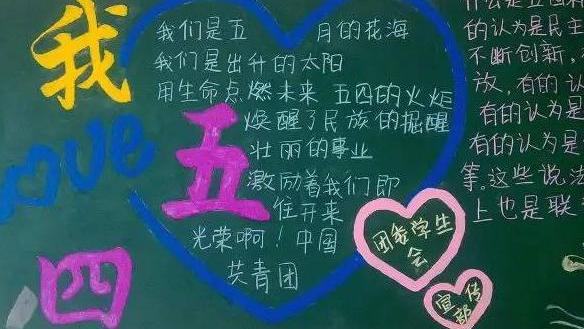 我
love
五
四
我们是五 月的花海
我们是出升的太阳
用生命点燃未来 五四的火炬
焕醒了民族的掘醒
壮丽的事业
激励着我们即
住开来
光荣啊！中国
共青团
团委学生
会
宣传
部
什么是五四
的认为是民主
不断创新，
放，有的认
有的认为是
有的认为是
等。这些说法
上也是联